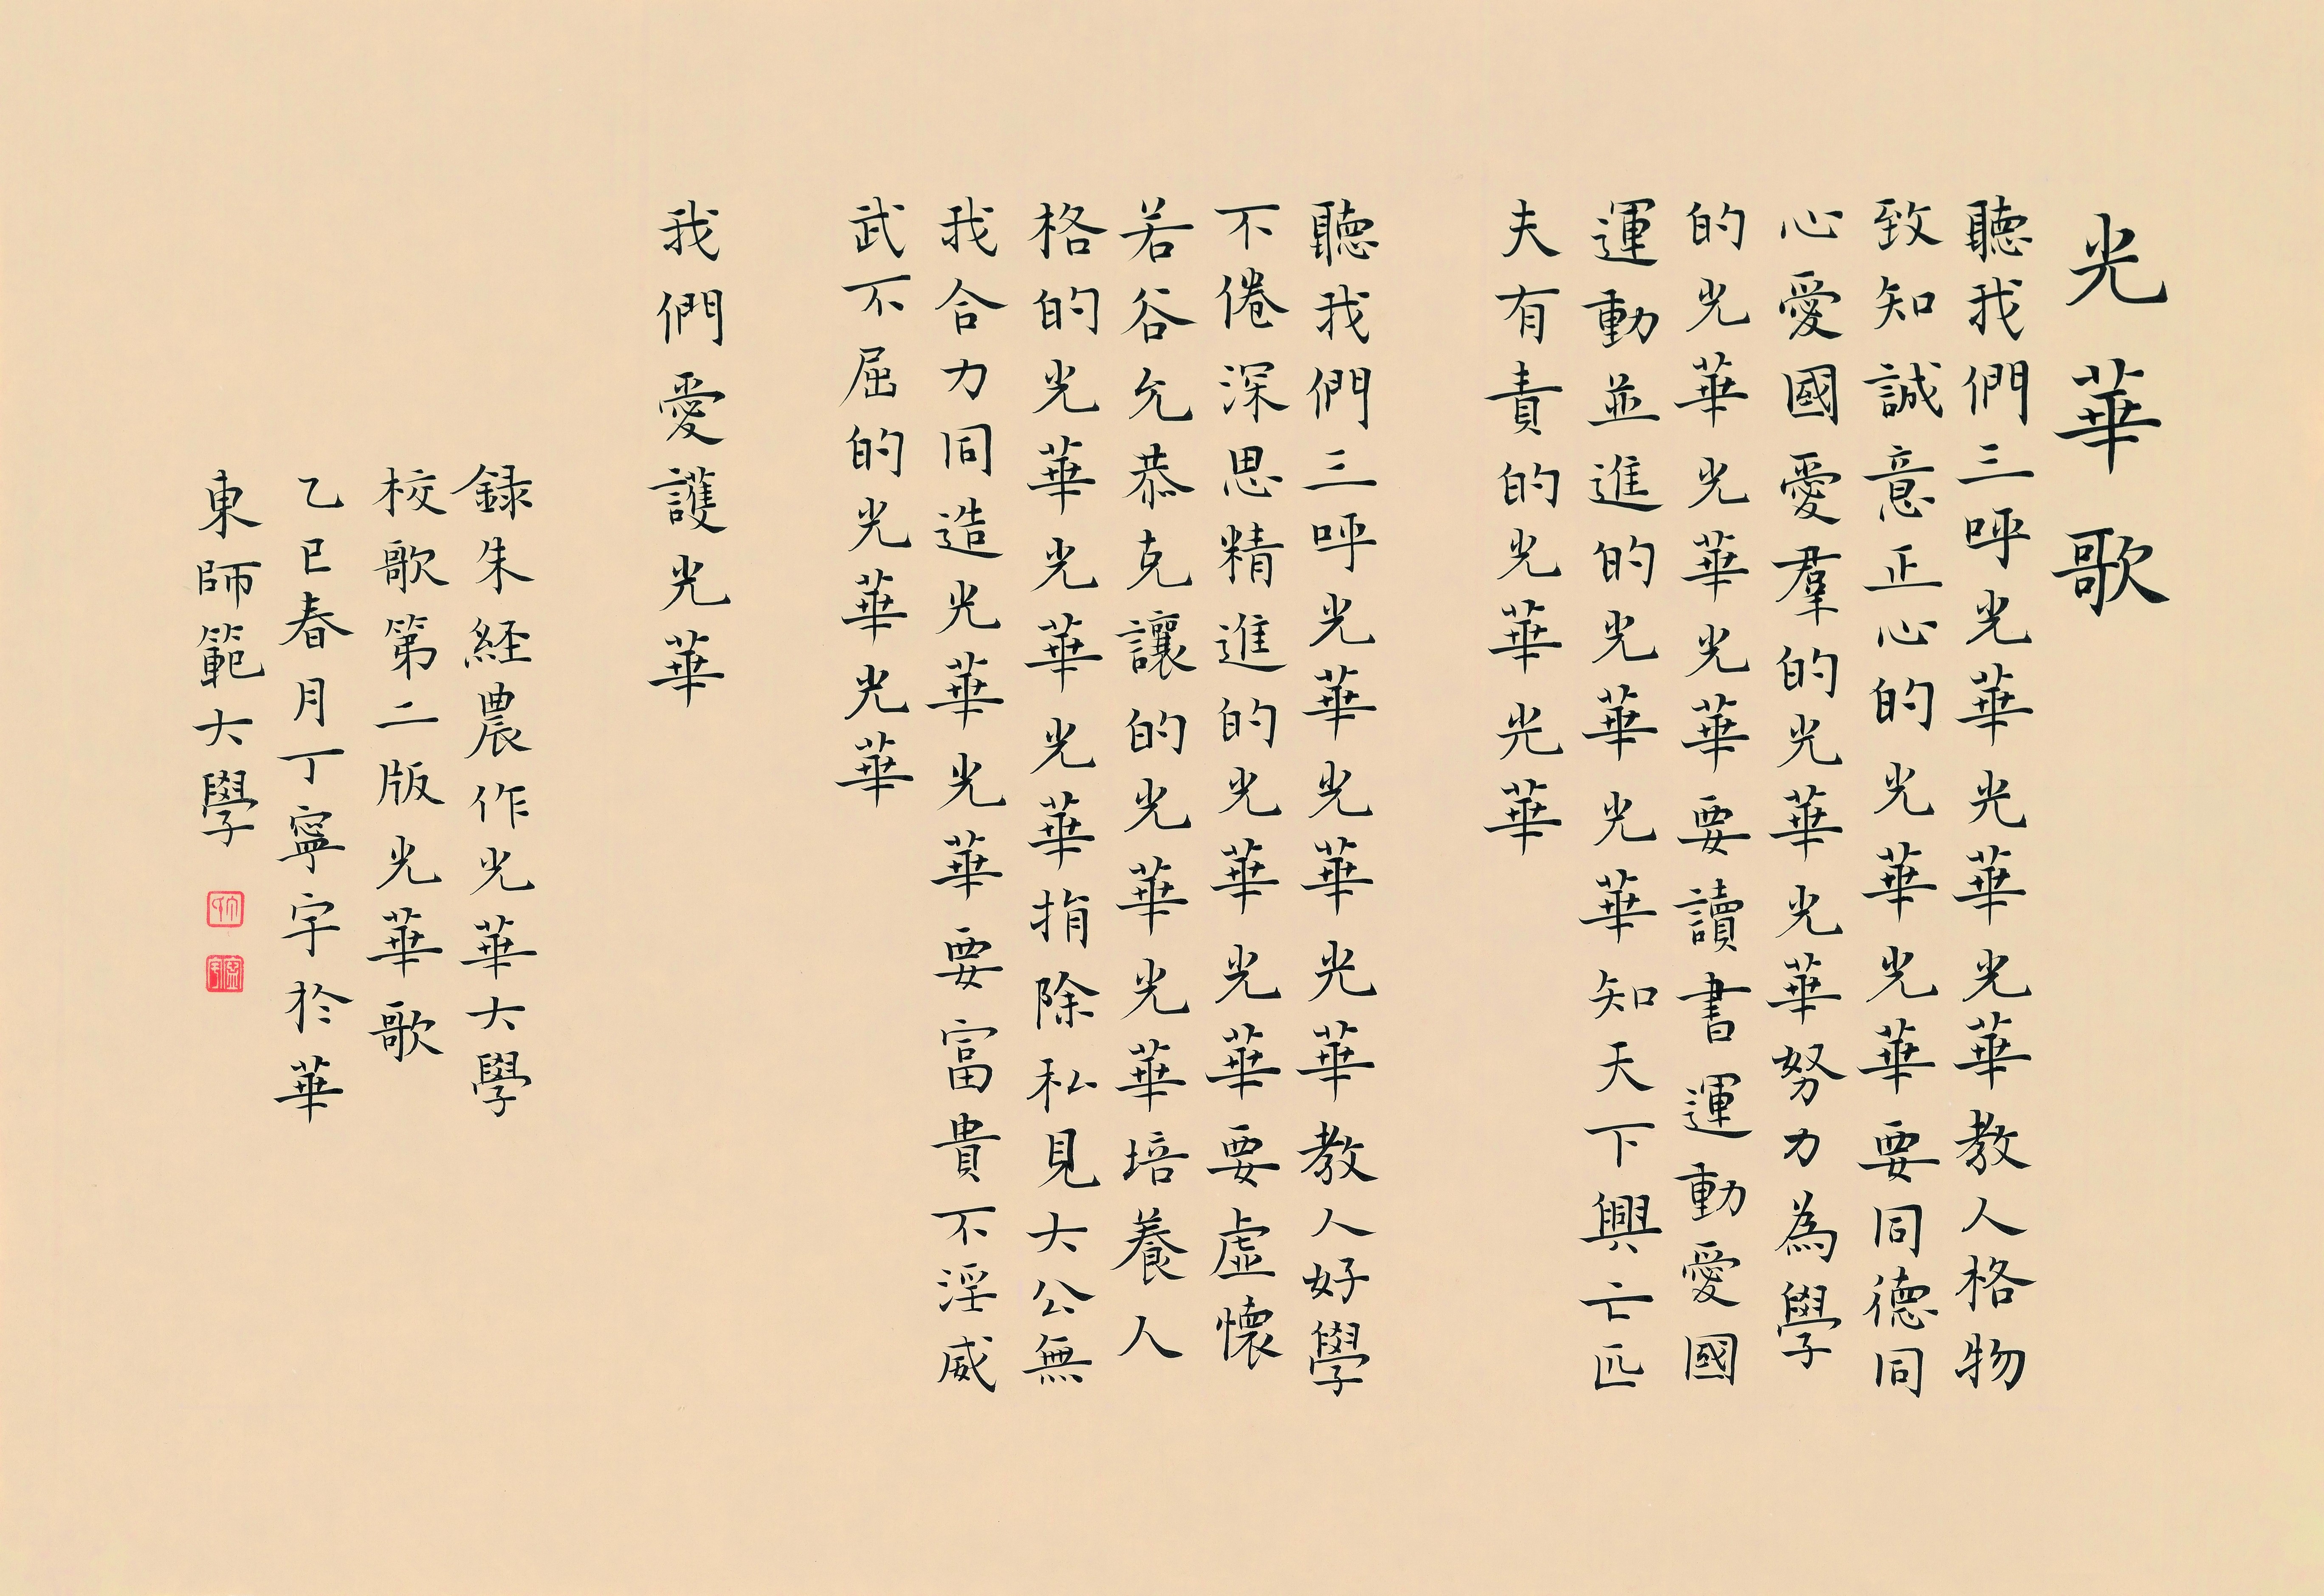 光華歌
聽我們三呼光華光華光華教人格物
致知誠意正心的光華光華要同德同
心愛國愛羣的光華光華努力為學
的光華光華光華要讀書運動愛國
運動並進的光華光華知天下興亡匹
夫有責的光華光華
聽我們三呼光華光華光華教人好學
不倦深思精進的光華光華要虛懷
若谷允恭克讓的光華光華培養人
格的光華光華光華捐除私見大公無
我合力同造光華光華要富貴不淫威
武不屈的光華光華
我們愛護光華
録朱経農作光華大學
校歌第二版光華歌
乙巳春月丁寧宇於華
東師範大學